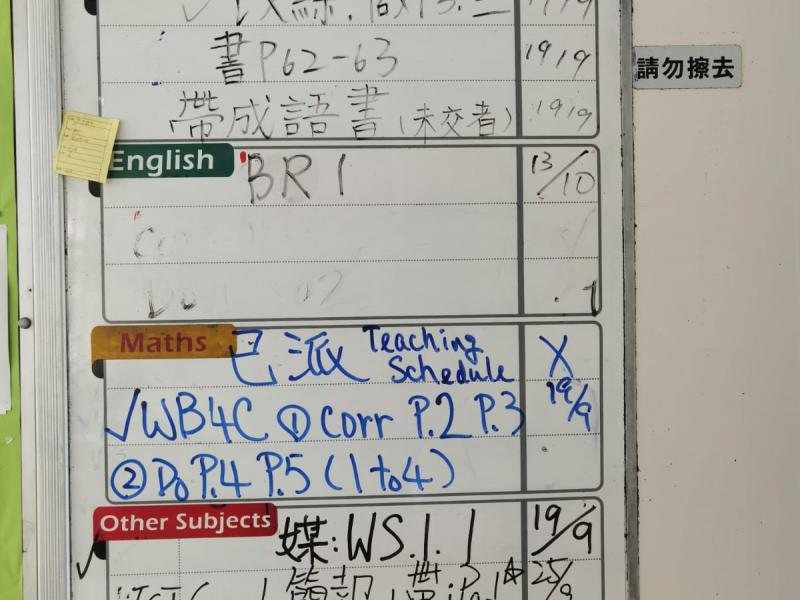 書P62-63 19/9
帶成語書(未交者) 19/9
請勿擦去
English BR1 13/10
Maths 已派 Teaching Schedule X
✓WB4C ① Corr P.2 P.3 19/9
② Do P.4 P.5 (1 to 4)
Other Subjects 媒:WS.1.1 19/9
簡報 25/9